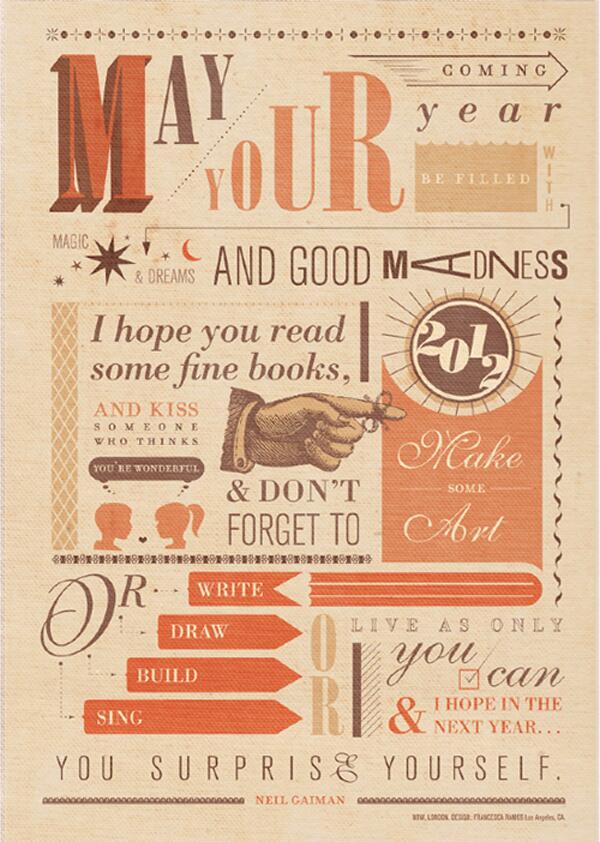 MAY YOUR COMING
year
BE FILLED WITH
MAGIC
& DREAMS
AND GOOD MADNESS
I hope you read
some fine books,
2012
AND KISS
SOMEONE
WHO THINKS
YOU'RE WONDERFUL
& DON'T
FORGET TO
Make
SOME
Art
OR WRITE
DRAW
BUILD
SING
OR
LIVE AS ONLY
you
can
& I HOPE IN THE
NEXT YEAR...
YOU SURPRISE YOURSELF.
NEIL GAIMAN
LONDON. DESIGN: FRANCESCA RAMOS Los Angeles, CA